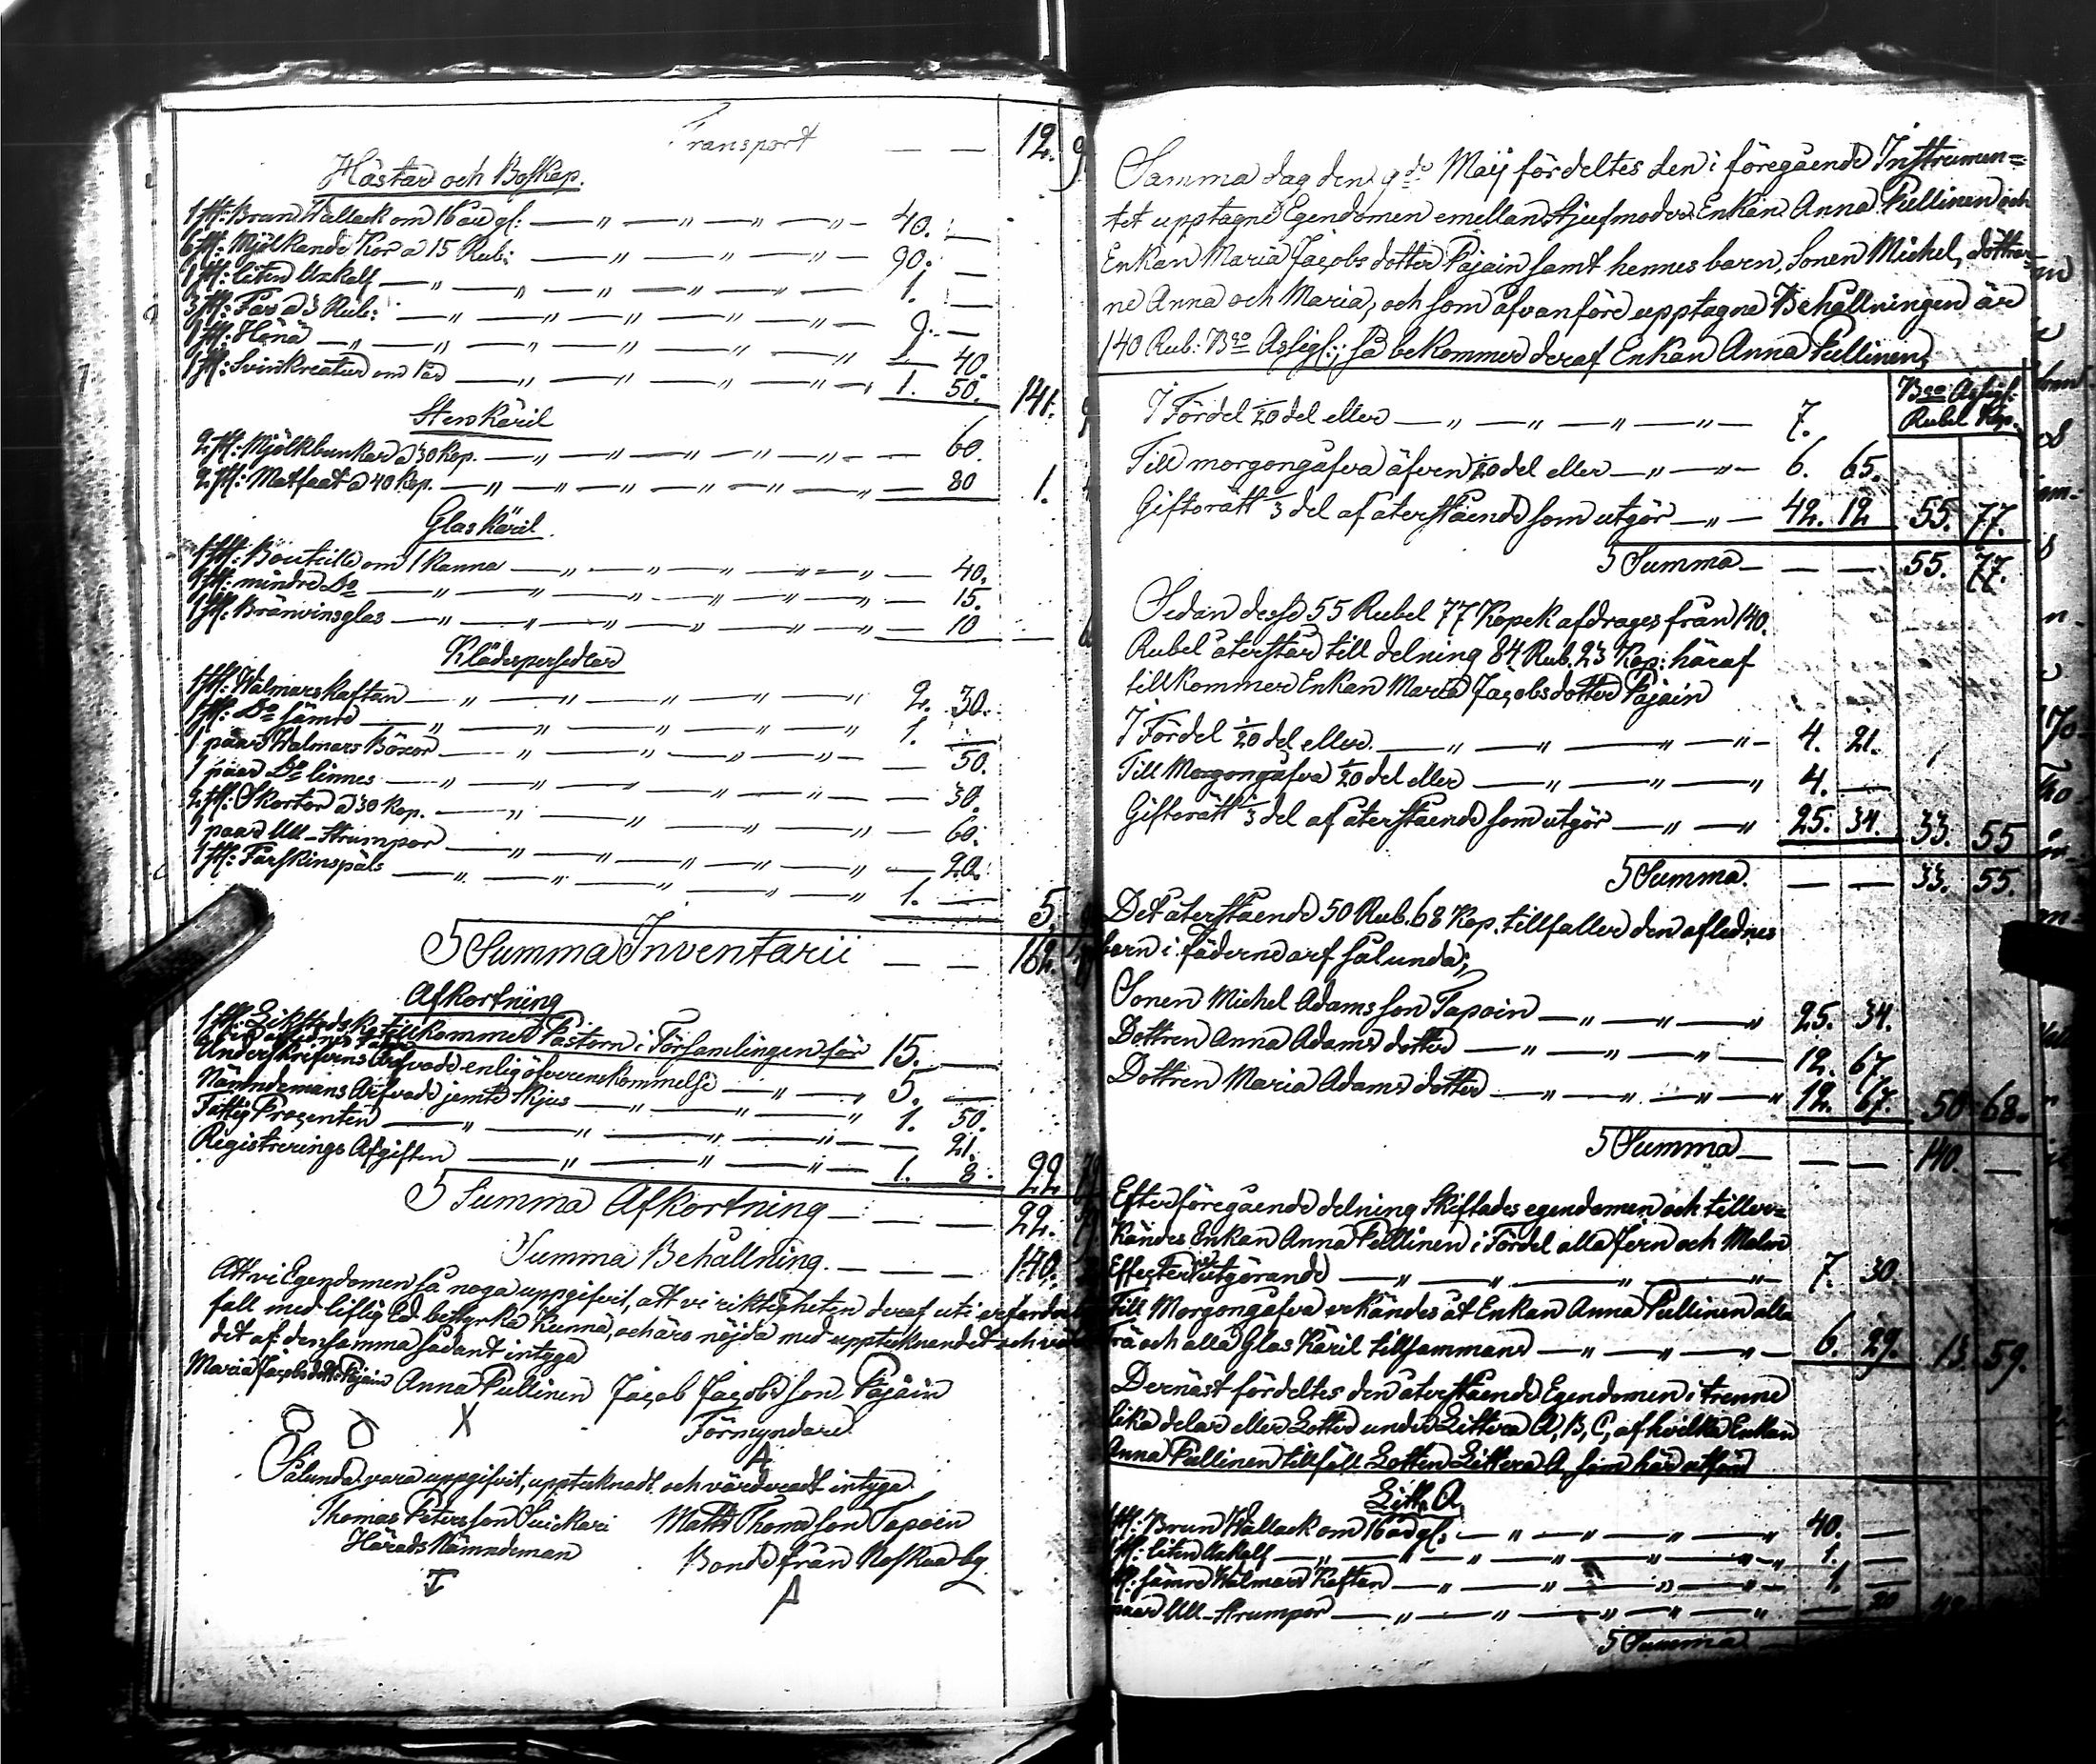 Transport — — 12. 9
Hästar och Boskap.
1 st: Brun Wallack om 16 år gl: — 40. —
6 st: Mjölkande Kor a 15 Rub: — 90. —
1 st: liten Uxkalf — 1. —
3 st: Får a 3 Rub: — 9. —
1 st: Höna — 40.
1 st: Svinkreatur om 1 år — 1. 50. 141.
Stenkäril
2 st: Mjölkbunkar a 30 Kop. — 60.
2 st: Matfaat a 40 Kop. — 80 1.
Glas Käril.
1 st: Bouteille om 1 Kanna — 40.
1 st: mindre Do — 15.
1 st: Bränvinsglas — 10
Klädespersedlar
1 st: Walmars kaftan — 2. 30.
1 st: Do sämre — 1. —
1 paar Walmars Böxor — 50.
1 paar Do linnes — 30.
2 st: Skortor a 30 Kop. — 60.
1 paar Ull-strumpor — 20.
1 st: Fårskinspäls — 1. — 5.
Summa Inventarii — — 162.
Afkortning
tillkommer Pastorn i Församlingen för 15. —
Underskrifvens Arfvode enlig öfverenskommelse — 5. —
Nämndemans Arfvode jemte Skjus — 1. 50.
Fattig Procenten — 21.
Registrerings Afgiften — 1. 8. 22
Summa Afkortning — — 22.
Summa Behållning. — — 140.
Att vi Egendomen så noga uppgifvit, att vi riktigheten deraf uti erfordra
fall med liflig Ed bestyrka kunna, och äro nöjda med upptecknandet och
det af densamma sådant intyga
Maria Jacobs dotter Pajain Anna Pullinen Jacob Jacobs son Pajäin
X Förmyndare
Sålunda vara uppgifvit, upptecknadt och värderadt intyga.
Thomas Peters son Suikari Matts Thomas son Tapoin
Härads Nämndeman Bonde från Koskua by.
Samma dag den 9de Maij fördeltes den i föregående Instrumen=
tet upptagne Egendomen emellan Stjufmodren Enkan Anna Pullinen och
Enkan Maria Jacobs dotter Pajain samt hennes barn, Sonen Michel, döttrar=
ne Anna och Maria, och som ofvanföre upptagne Behållningen är
140 Rub: Bco Assigs:; så bekommer deraf Enkan Anna Pullinen;
Bco Assigs:
Rubel Kop.
I Fördel 1/20 del eller — 7.
Till morgongåfva äfven 1/20 del eller — 6. 65.
Giftorätt 1/3 del af återstående som utgör — 42. 12 55. 77.
Summa — — 55. 77.
Sedan desse 55 Rubel 77 Kopek afdrages från 140.
Rubel återstår till delning 84 Rub. 23 Kop: häraf
tillkommer Enkan Maria Jacobsdotter Pajain
I Fördel 1/20 del eller — 4. 21.
Till Morgongåfva 1/20 del eller — 4. —
Giftorätt 1/3 del af återstående som utgör — 25. 34. 33. 55
Summa. — — 33. 55.
Det återstående 50 Rub. 68 Kop. tillfaller den aflednes
barn i fäderne arf sålunda;
Sonen Michel Adams son Tapoin — 25. 34.
Dottren Anna Adams dotter — 12. 67.
Dottren Maria Adams dotter — 12. 67. 50 68.
Summa — — 140. —
Efter föregående delning skiftades egendomen och tiller=
kändes Enkan Anna Pullinen i Fördel alla Jern och Malm
Effecter utgörande — 7. 30.
Till Morgongåfva erkändes åt Enkan Anna Pullinen alla
Trä och alla Glas Käril tillsammans — 6. 29. 13. 59.
Dernäst fördeltes den återstående Egendomen i trenne
lika delar eller Lotter under Littera A, B, C, af hvilka Enkan
Anna Pullinen tillföll Lotten Littera A, som här utförs
Litt. A,
1 st: Brun Wallack om 16 år gl: — 40. —
1 st: liten Uxkalf — 1. —
1 st: sämre Walmars Kaftan — 1. —
paar Ull-strumpor — 20
Summa